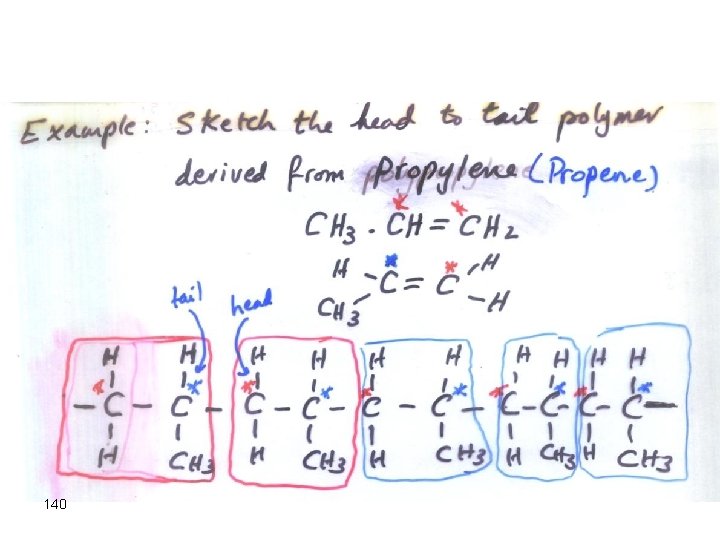 Example: Sketch the head to tail polymer
derived from Propylene (Propene)
* *
CH3 . CH = CH2
H * * H
- C = C
CH3 - H
tail head
H H H H H H H H H H
* * * * * * * * * *
- C - C - C - C - C - C - C - C - C - C -
H CH3 H CH3 H CH3 H CH3 H CH3
140